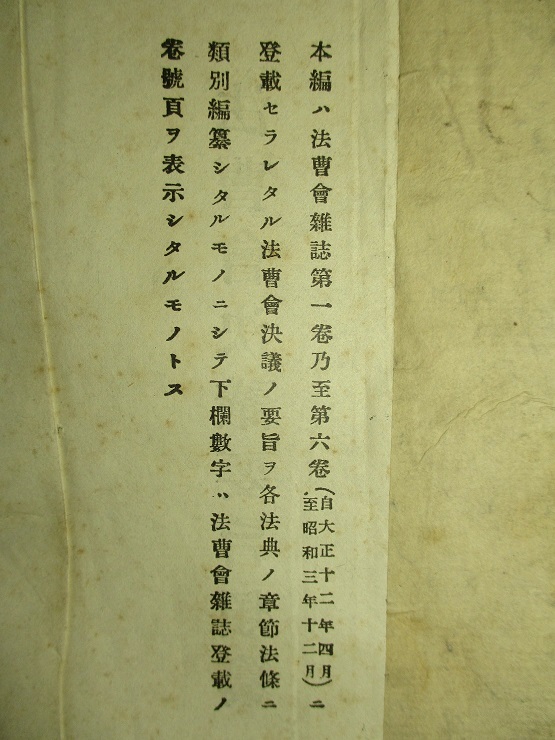 本編ハ法曹會雜誌第一卷乃至第六卷(自大正十二年四月至昭和三年十二月)ニ
登載セラレタル法曹會決議ノ要旨ヲ各法典ノ章節法條ニ
類別編纂シタルモノニシテ下欄數字ハ法曹會雜誌登載ノ
卷號頁ヲ表示シタルモノトス